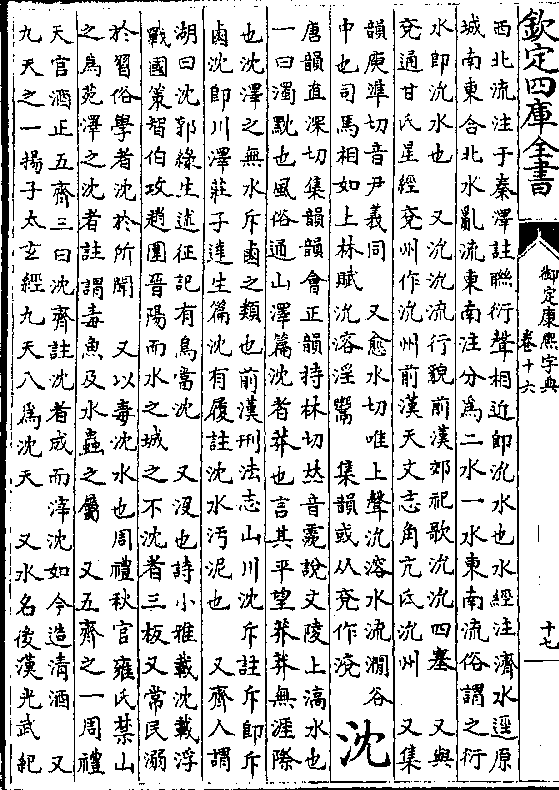 欽定四庫全書
御定康熙字典
卷十六
十七
西北流注于秦澤註聯衍聲相近即沇水也水經注濟水逕原
城南東合北水亂流東南注分為二水一水東南流俗謂之衍
水即沇水也 又沇沇流行貌前漢郊祀歌沇沇四塞 又與
兗通甘氏星經兗州作沇州前漢天文志角亢氐沇州 又集
韻庾準切音尹義同 又愈水切唯上聲沇溶水流澗谷
中也司馬相如上林賦沇溶淫鬻 集韻或从兗作渷
沈
唐韻直深切集韻韻會正韻持林切𠀤音霃說文陵上滈水也
一曰濁黕也風俗通山澤篇沈者莽也言其平望莽莽無涯際
也沈澤之無水斥鹵之類也前漢刑法志山川沈斥註斥即斥
鹵沈即川澤莊子達生篇沈有履註沈水汚泥也 又齊人謂
湖曰沈郭緣生述征記有鳥當沈 又沒也詩小雅載沈載浮
戰國策智伯攻趙圍晉陽而水之城之不沈者三板又常民溺
於習俗學者沈於所聞 又以毒沈水也周禮秋官雍氏禁山
之為苑澤之沈者註謂毒魚及水蟲之屬 又五齊之一周禮
天官酒正五齊三曰沈齊註沈者成而滓沈如今造清酒 又
九天之一揚子太玄經九天八為沈天 又水名後漢光武紀